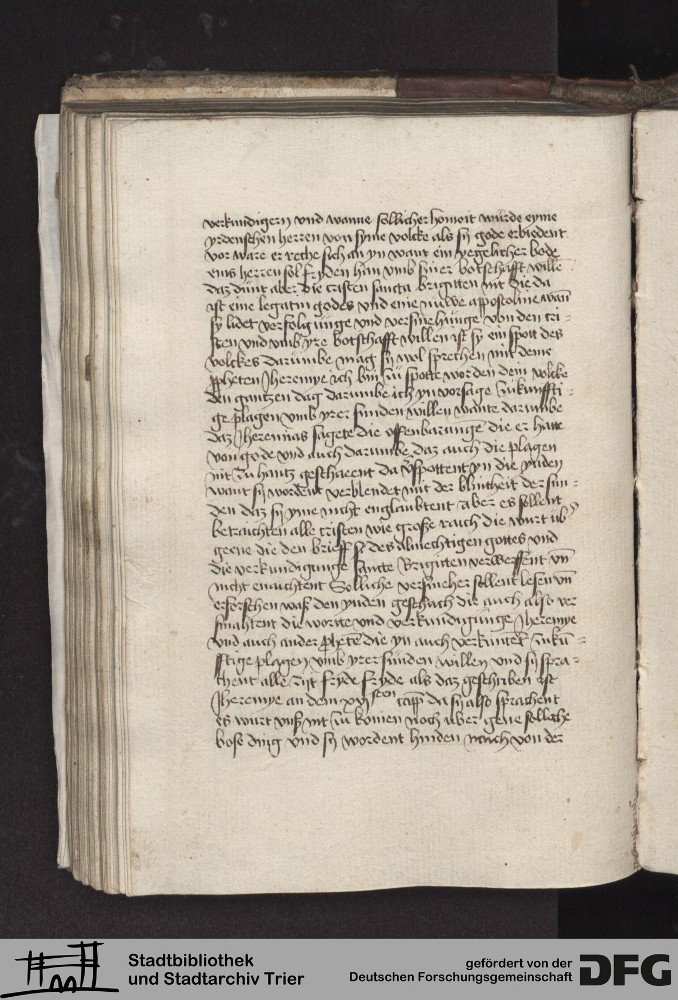 verkundigern vnd wanne sollicher homoit würde eyme
yrdenschen herren von syme volcke als sy gode erbiedent
vor ware er reche sich an yn want ein yegelicher bode
eins herren sol fryden han vmb siner botschafft wille
daz dünt aber die cristen sancta brigitten nit die da
ist eine legatin gades vnd eine nüwe appostoline wan
sy lidet verfolgünge vnd versmehünge von den cri-
sten vnd vmb yre botschafft willen ist sy ein spott des
volckes darümbe mag sy wol sprechen mit deme
ppheten Jheremye ich bin zü spotte worden dem volcke
den gantzen dag darumbe ich yn vorsage zükunffti-
ge plagen vmb yrer sunden willen wante darumbe
daz Jheremias sagete die offenbarunge die er hatte
von gode vnd auch darumbe daz auch die plagen
nit zu hantz geschaeent da vspottent yn die yuden
want sy wordent verblendet mit der blintheit der sun-
den daz sy yme nicht englaubtent aber es sollent
betrachten alle cristen wie große rach die wurt üb
geene die den brieff des almechtigen gottes vnd
die verkundigunge sancte Brigitten verwerffent vn
nicht enachtent Solliche versmeher sollent lesen vn
erforschen waß den yuden geschach die auch also ver
smahtent die worte vnd verkundigunge Jheremye
vnd auch ander phete die yn auch verkunten zukü-
fftige plagen vmb yrer sünden willen vnd sy spra-
chent alle zijt fryde fryde als daz geschriben ist
Jheremye an dem xvj sten capp da sy also sprachent
es wurt vnß nit zu komen noch uber gene solliche
bose ding vnd sy wordent hinden nach von der
Stadtbibliothek
und Stadtarchiv Trier
gefördert von der
Deutschen Forschungsgemeinschaft
DFG